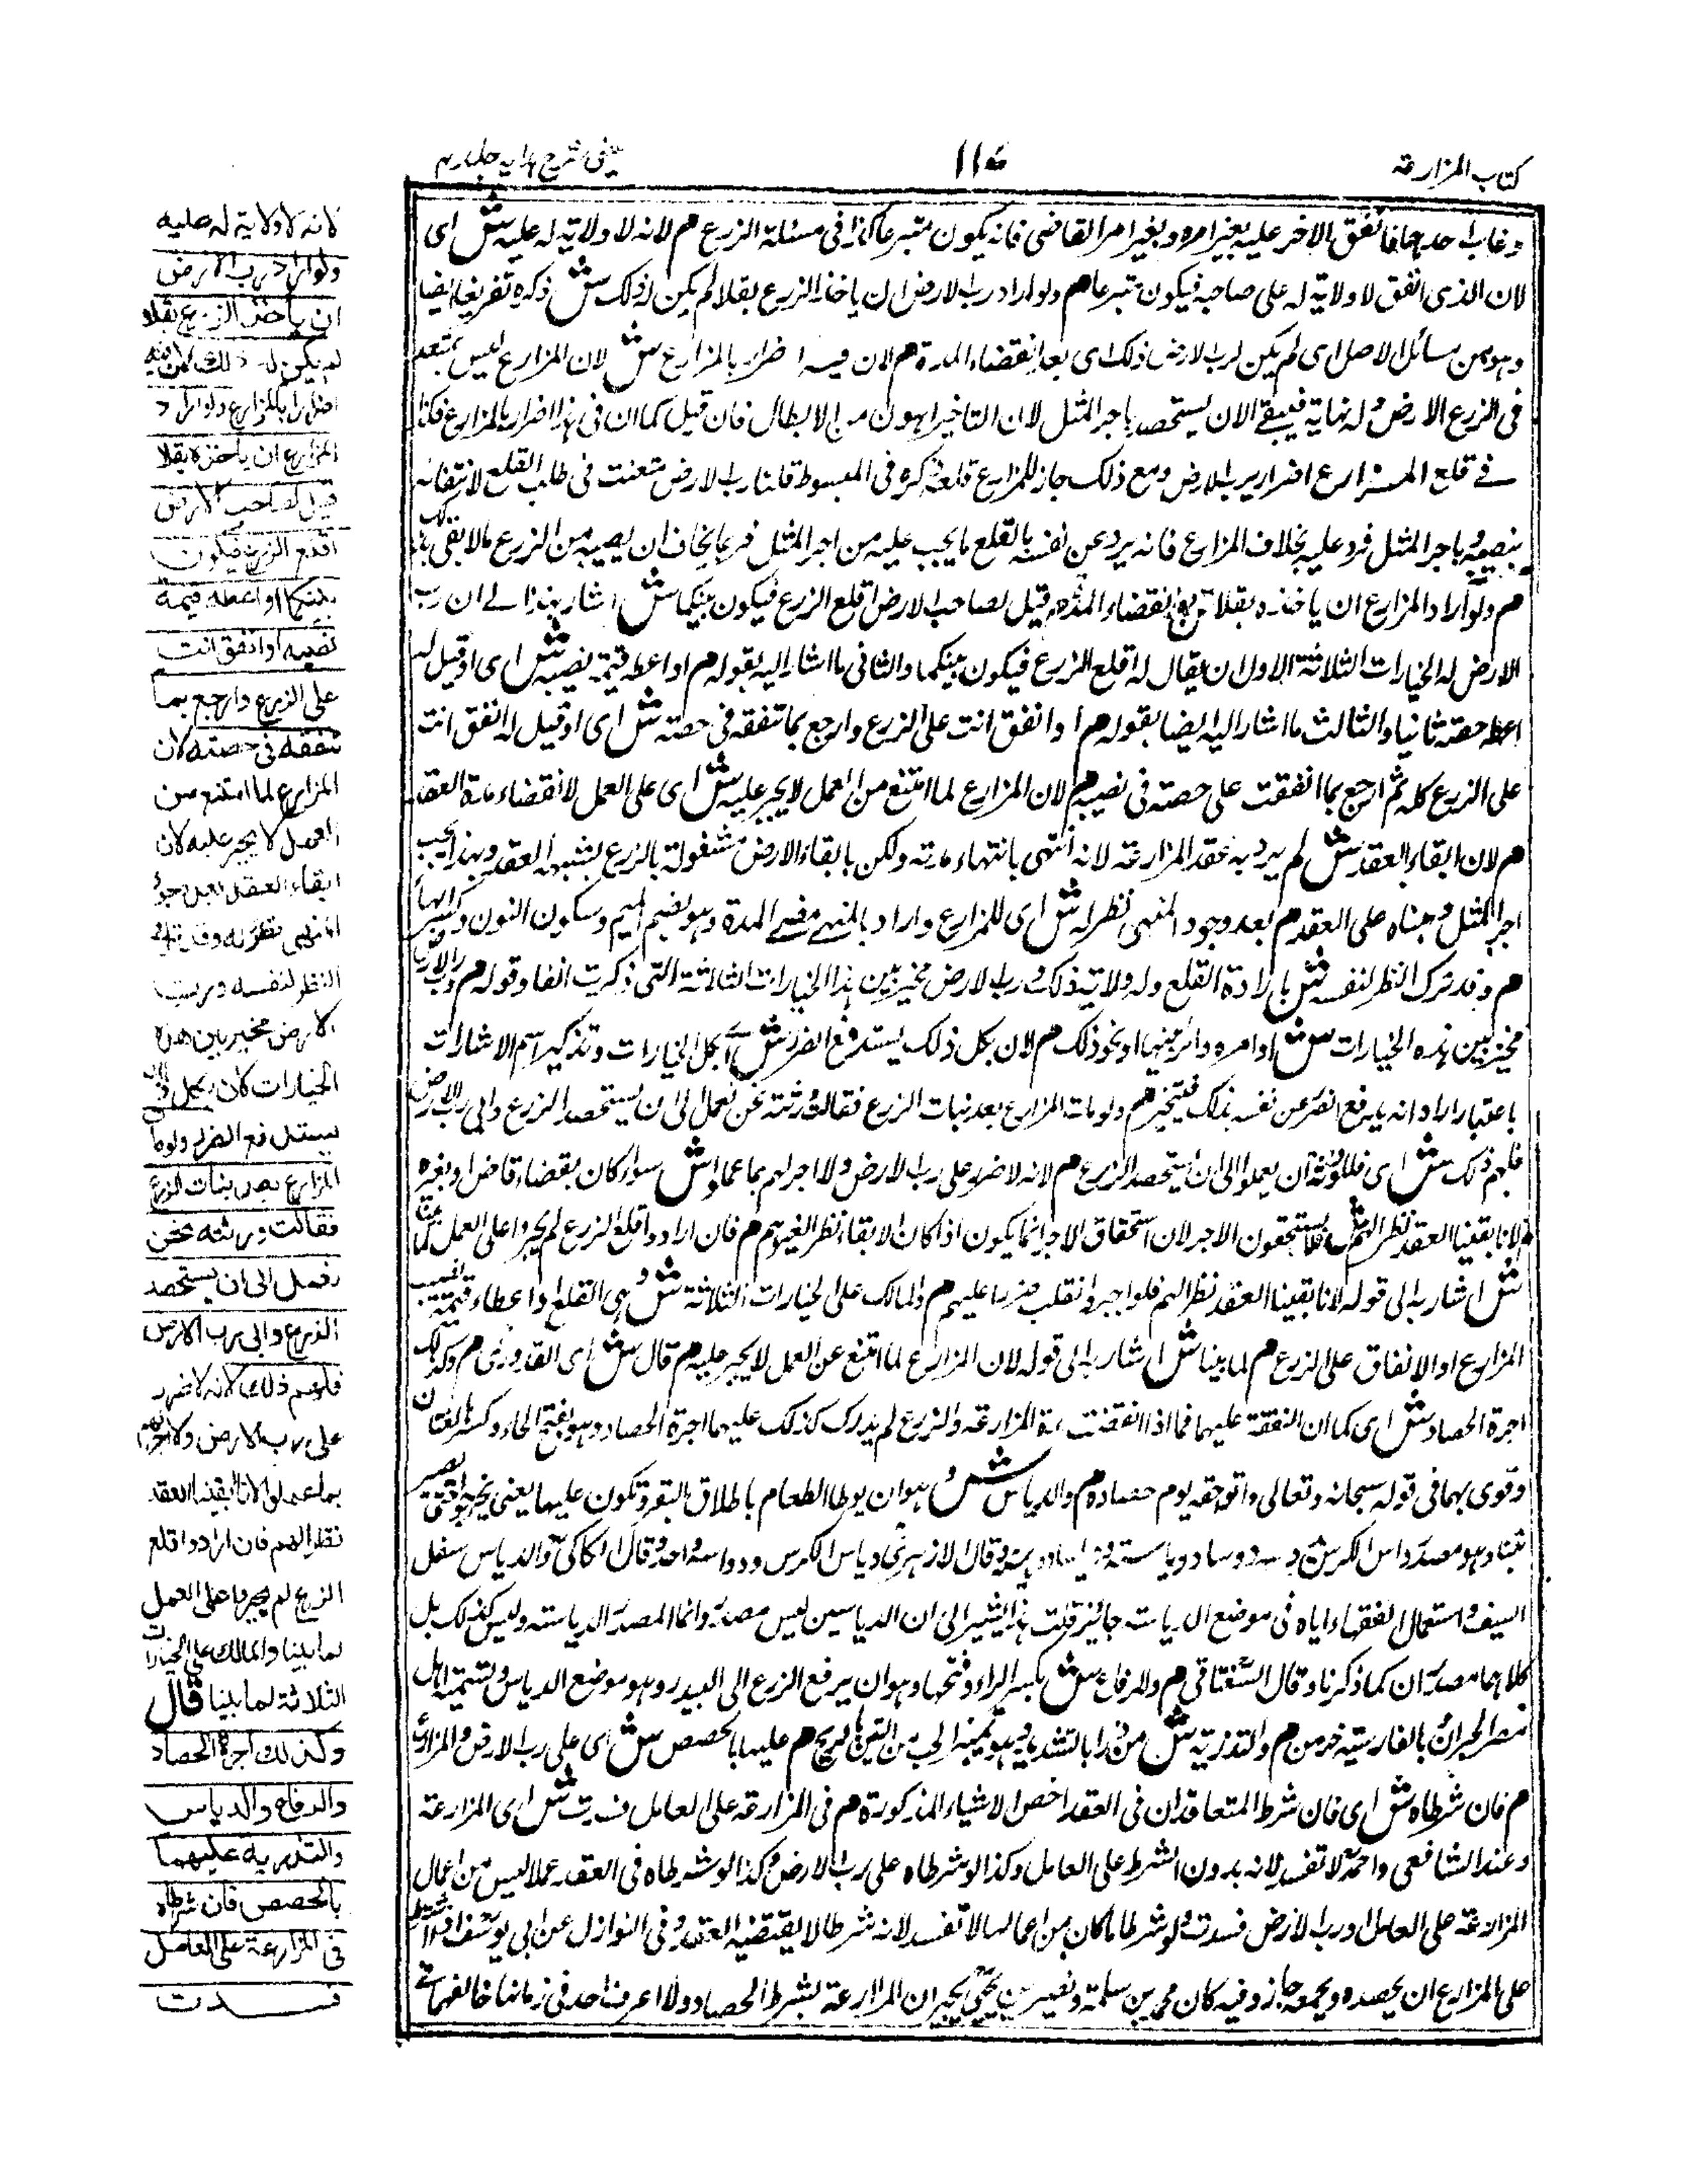 كتاب المزارعة
عينى شرح هدايه جلد رابع
وغاب احدهما فانفق الاخر عليه بغير امره وبغير امر القاضى فانه يكون متبرعا كذا فى مسئلة الزرع م لانه لا ولاية له عليه ش اى
لان الذى انفق لا ولاية له على صاحبه فيكون متبرعا م ولو اراد رب الارض ان ياخذ الزرع بقلا لم يكن له ذلك ش ذكره تفريعا ايضا
وهو من مسائل الاصل اى لم يكن لرب الارض ذلك اى بعد انقضاء المدة م لان فيه اضرارا بالمزارع ش لان المزارع ليس بمتعد
فى الزرع الارض وله نهاية فيبقى الى ان يستحصد باجر المثل لان التاخير اهون من الابطال فان قيل كما ان فى هذا اضرارا بالمزارع فكذا
فى قلع المزارع اضرار برب الارض ومع ذلك جاز للمزارع قلعه ذكره فى المبسوط قلنا رب الارض متعنت فى طلب القلع لانتفاعه
بنصيبه وباجر المثل فرد عليه بخلاف المزارع فانه يرد عن نفسه بالقلع ما يجب عليه من اجر المثل فربما يخاف ان يصيبه من الزرع مالا يفى بذلك
م ولو اراد المزارع ان ياخذه بقلا ش بعد انقضاء المدة م قيل لصاحب الارض اقلع الزرع فيكون بينكما ش اشار بهذا الى ان رب
الارض له الخيارات الثلاثة الاول ان يقال له اقلع الزرع فيكون بينكما والثانى ما اشار اليه بقوله م او اعطه قيمة نصيبه ش اى او قيل له
اعطه حصته ثانيا والثالث ما اشار اليه ايضا بقوله م او انفق انت على الزرع وارجع بما تنفقه فى حصته ش اى او قيل له انفق انت
على الزرع كله ثم ارجع بما انفقت على حصته فى نصيبه م لان المزارع لما امتنع من العمل لا يجبر عليه ش اى على العمل لانقضاء مدة العقد
م لان ابقاء العقد ش لم يرد به عقد المزارعة لانه انتهى بانتهاء مدته ولكن بابقاء الارض مشغولة بالزرع يشبه العقد وبهذا يجب
اجر المثل ومبناه على العقد م بعد وجود المنهى نظر له ش اى للمزارع واراد بالمنهى مضى المدة وهو بضم الميم وسكون النون وكسر الهاء
م وقد ترك النظر لنفسه ش بارادة القلع وله ولاية ذلك ورب الارض مخير بين هذا الخيارات الثلاثة التى ذكرت انفا وقوله م ورب الارض
مخير بين هذه الخيارات ش او امره دائر بينها او نحو ذلك م لان بكل ذلك يستدفع الضرر ش اى بكل الخيارات وتذكير اسم الاشارات
باعتبار اراد انه يدفع الضرر عن نفسه بذلك فيتخير م ولو مات المزارع بعد نبات الزرع فقالت ورثته نحن نعمل الى ان يستحصد الزرع وابى رب الارض
فلهم ذلك ش اى فللورثة ان يعملوا الى ان يستحصد الزرع م لانه لا ضرر على رب الارض ولا اجر لهم بما عملوا ش سواء كان بقضاء قاض او بغيره
م لانا ابقينا العقد نظرا لهم ش فلا يستحقون الاجر لان استحقاق الاجر انما يكون اذا كان الابقاء نظرا لغيرهم م فان ارادوا قلع الزرع لم يجبروا على العمل لما بينا
ش اشار به الى قوله لانا ابقينا العقد نظرا لهم فلو اجبروا انقلب ضررا عليهم م والمالك على الخيارات الثلاثة ش وهى القلع واعطاء قيمة نصيب
المزارع او الانفاق على الزرع م لما بينا ش اشار به الى قوله لان المزارع لما امتنع عن العمل لا يجبر عليه م قال ش اى القدورى م وكذلك
اجرة الحصاد ش اى كما ان النفقة عليهما فيما اذا انقضت مدة المزارعة والزرع لم يدرك كذلك عليهما اجرة الحصاد وهو بفتح الحاء وكسرها لغتان
وقرى بهما فى قوله سبحانه وتعالى واتوا حقه يوم حصاده م والدياس ش وهو ان يوطا الطعام باطلاق البقر وتكون عليها يعنى
وقال الازهرى دياس الكدس ودواسه واحد وقال الكاكى والدياس صقل
السيف واستعمال الفقهاء اياه فى موضع الدياسة جائز قلت هذا يشير الى ان الدياس ليس مصدرا وانما المصدر الدياسة وليس كذلك بل
كلاهما مصدران كما ذكرنا وقال السغناقى م والرفاع ش بكسر الراء وفتحها وهو ان يرفع الزرع الى البيدر وهو موضع الدياس وتسميته اهل
بالفارسية خرمن م والتذرية ش من ذرا بالتشديد وهو تمييز الحب من التبن بالريح م عليهما بالحصص ش اى على رب الارض والمزارع
م فان شرطاه ش اى فان شرط المتعاقدان فى العقد اخص الاشياء المذكورة م فى المزارعة على العامل فسدت ش اى المزارعة
وعند الشافعى واحمد لا تفسد لانه بدون الشرط على العامل وكذا لو شرطاه على رب الارض وكذا لو شرطاه فى العقد عملا ليس من اعمال
المزارعة على العامل او رب الارض فسدت ولو شرطا ما كان من اعمالها لا تفسد لانه شرطا لا يقتضيه العقد وفى النوازل عن ابى يوسف اذا شرط
على المزارع ان يحصده ويجمعه جاز وفيه كان محمد بن سلمة ونصير بن يحيى يجيزان المزارعة بشرط الحصاد ولا اعرف احد فى زماننا خالفهما فى
لانه لا ولاية له عليه
ولو اراد رب الارض
ان ياخذ الزرع بقلا
لم يكن له ذلك لان فيه
اضرارا بالمزارع ولو اراد
المزارع ان ياخذه بقلا
قيل لصاحب الارض
اقلع الزرع فيكون
بينكما او اعطه قيمة
نصيبه او انفق انت
على الزرع وارجع بما
تنفقه فى حصته لان
المزارع لما امتنع من
العمل لا يجبر عليه لان
ابقاء العقد بعد وجود
المنهى نظر له وقد ترك
النظر لنفسه ورب
الارض مخير بين هذه
الخيارات لان بكل ذلك
يستدفع الضرر ولو مات
المزارع بعد نبات الزرع
فقالت ورثته نحن
نعمل الى ان يستحصد
الزرع وابى رب الارض
فلهم ذلك لانه لا ضرر
على رب الارض ولا اجر لهم
بما عملوا لانا ابقينا العقد
نظرا لهم فان ارادوا قلع
الزرع لم يجبروا على العمل
لما بينا والمالك على الخيارات
الثلاثة لما بينا قال
وكذلك اجرة الحصاد
والرفاع والدياس
والتذرية عليهما
بالحصص فان شرطاه
فى المزارعة على العامل
فسدت